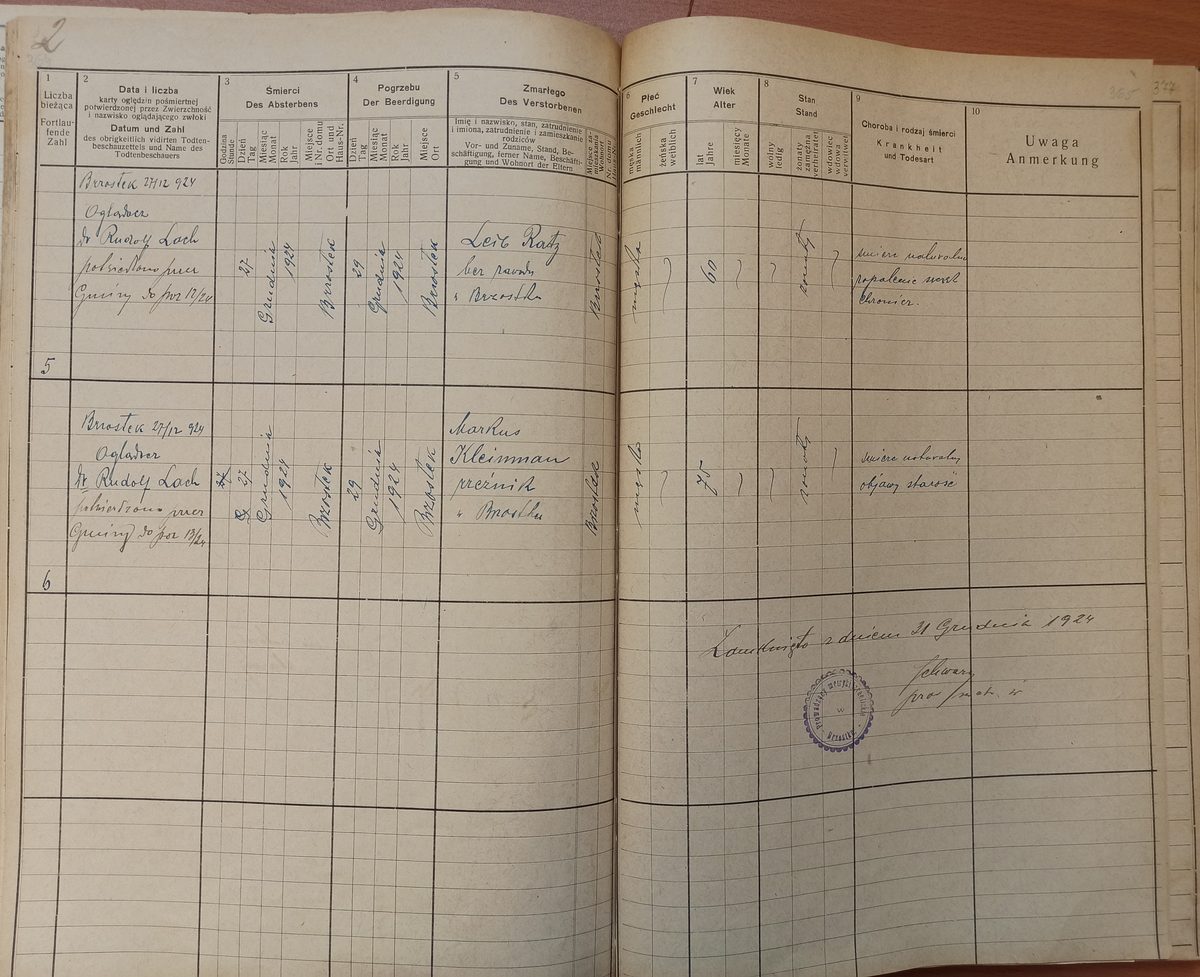 2
365
377
1
Liczba
bieżąca
Fortlau-
fende
Zahl
2
Data i liczba
karty oględzin pośmiertnej
potwierdzonej przez Zwierzchność
i nazwisko oglądającego zwłoki
Datum und Zahl
des obrigkeitlich vidirten Todten-
beschauzettels und Name des
Todtenbeschauers
3
Śmierci
Des Absterbens
Godzina
Stunde
Dzień
Tag
Miesiąc
Monat
Rok
Jahr
Miejsce
i Nr. domu
Ort und
Haus-Nr.
4
Pogrzebu
Der Beerdigung
Dzień
Tag
Miesiąc
Monat
Rok
Jahr
Miejsce
Ort
5
Zmarłego
Des Verstorbenen
Imię i nazwisko, stan, zatrudnienie
i imiona, zatrudnienie i zamieszkanie
rodziców
Vor- und Zuname, Stand, Be-
schäftigung, ferner Name, Beschäfti-
gung und Wohnort der Eltern
6
Płeć
Geschlecht
męska
männlich
żeńska
weiblich
7
Wiek
Alter
lat
Jahre
miesięcy
Monate
8
Stan
Stand
wolny
ledig
żonaty
zamężna
verheiratet
wdowiec
wdowa
verwitwet
9
Choroba i rodzaj śmierci
Krankheit
und Todesart
10
Uwaga
Anmerkung
5
Brzostek 27/12 924
Oglądacz
dr Rudolf Lach
potwierdzono przez
Gminy do poz 12/24
27
Grudnia
1924
Brzostek
29
Grudnia
1924
Brzostek
Leib Ratz
bez zawodu
w Brzostku
Brzostek
męska
60
żonaty
śmierć naturalna
zapalenie nerek
chronicz.
6
Brzostek 27/12 924
Oglądacz
dr Rudolf Lach
potwierdzono przez
Gminy do poz 13/24
27
Grudnia
1924
Brzostek
29
Grudnia
1924
Brzostek
Markus
Kleinman
rzeźnik
w Brzostku
Brzostek
męska
75
żonaty
śmierć naturalny
objawy starość
Zamknięto z dniem 31 Grudnia 1924
w
Brzostku